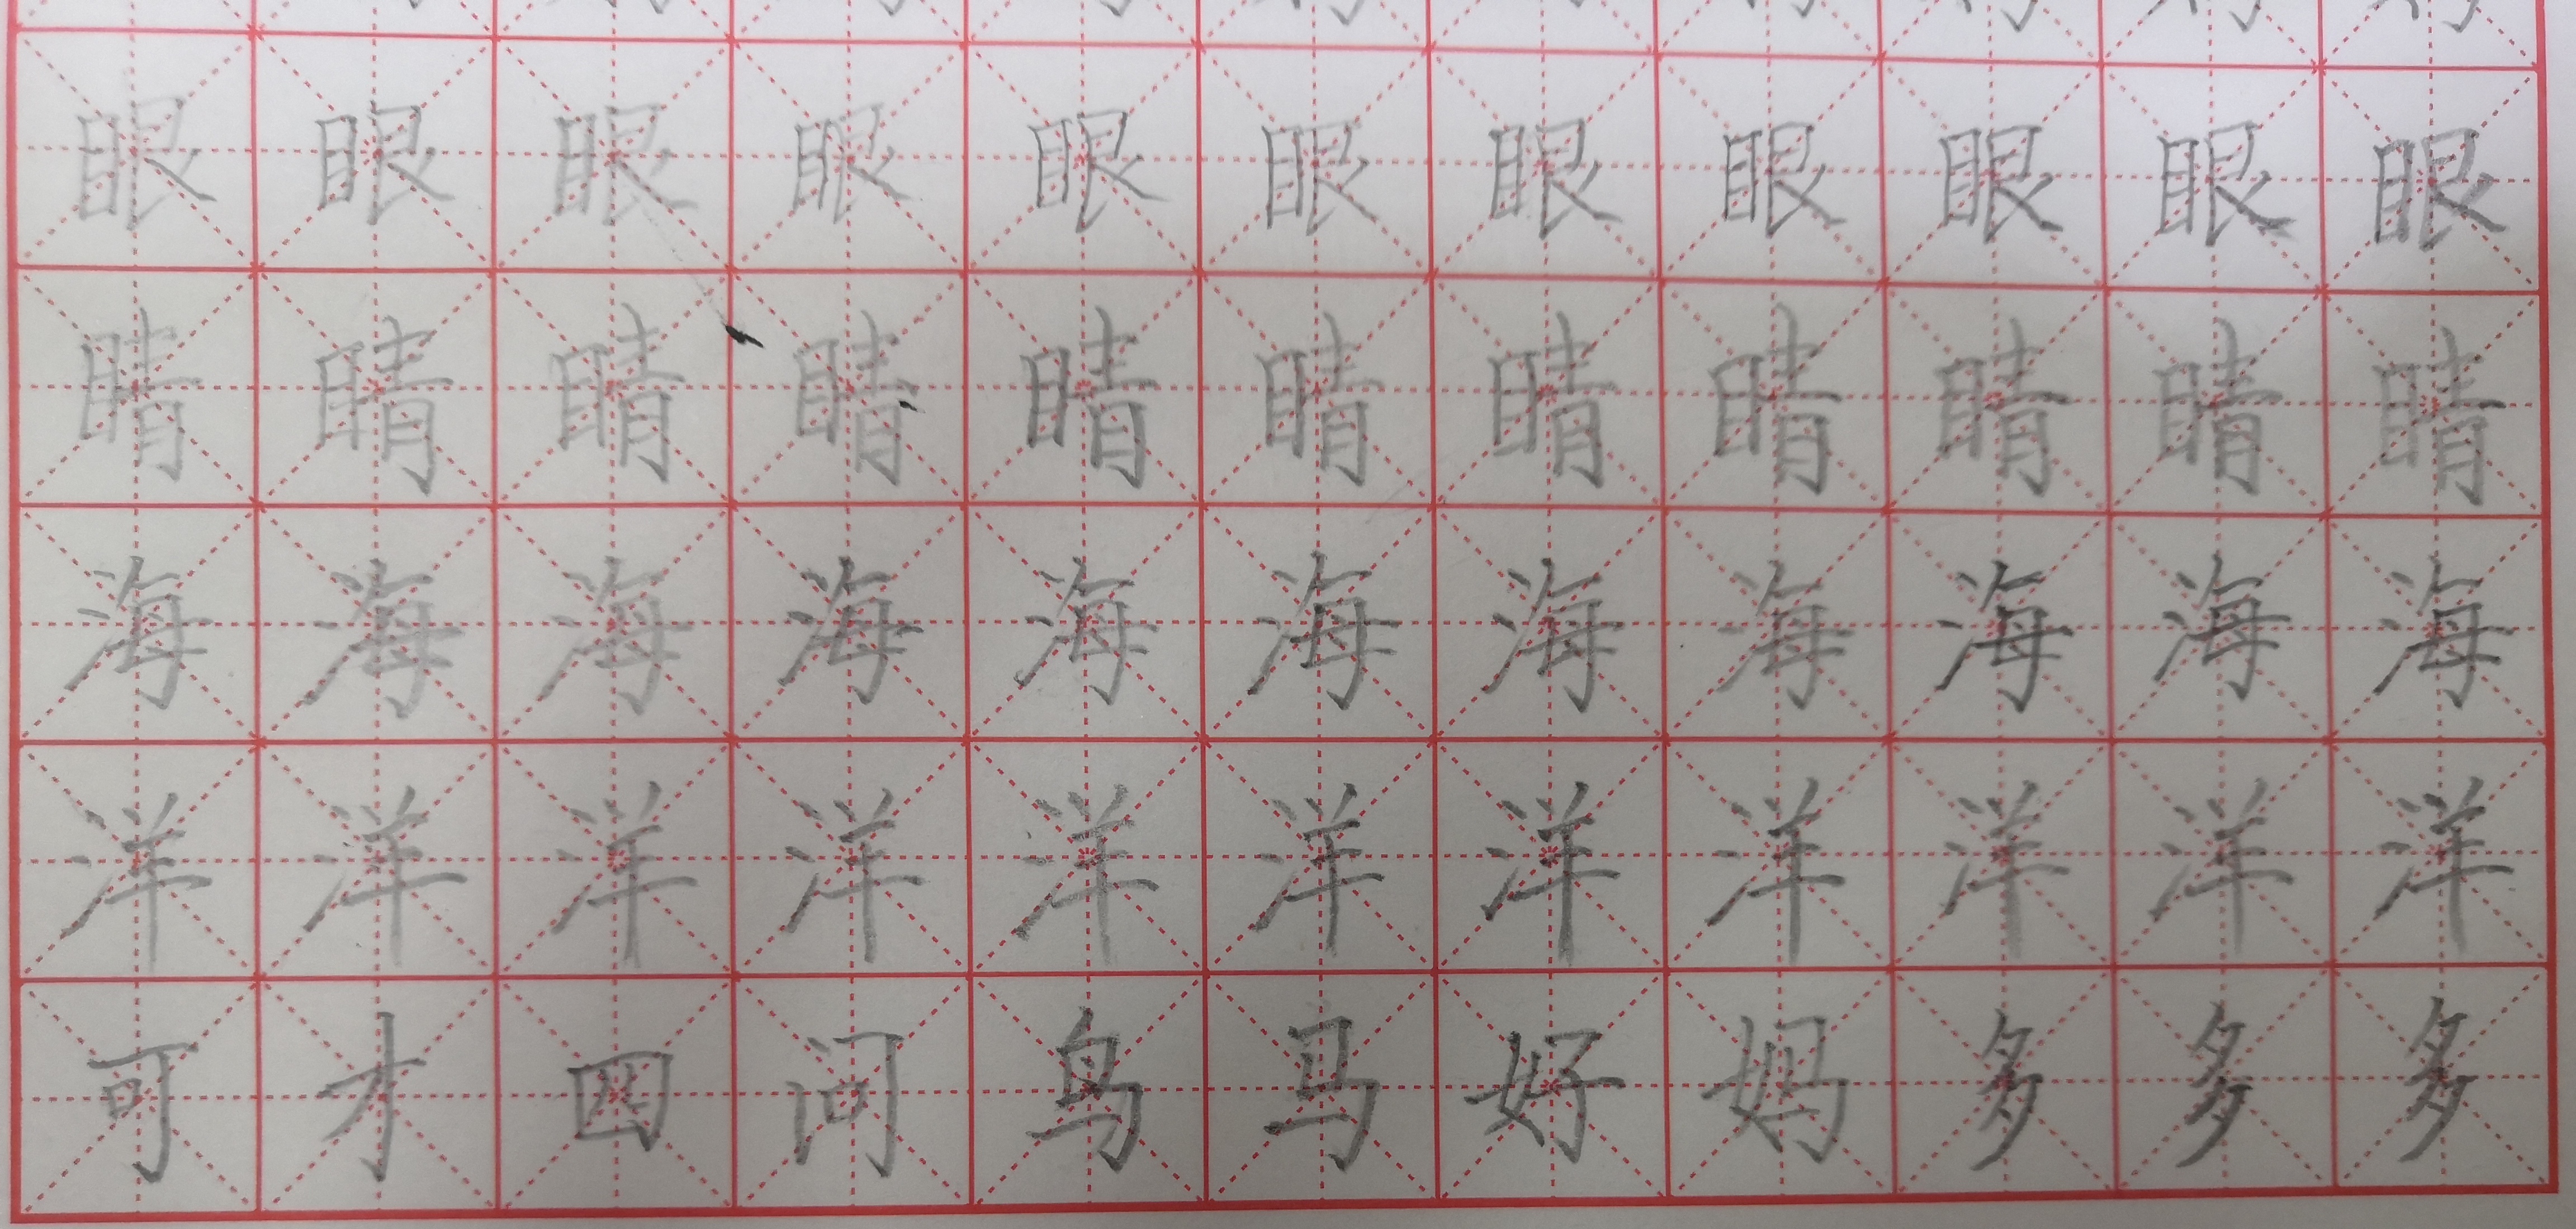 眼眼眼眼眼眼眼眼眼眼眼
睛睛睛睛睛睛睛睛睛睛睛
海海海海海海海海海海海
洋洋洋洋洋洋洋洋洋洋洋
可才四问鸟马好妈多多多